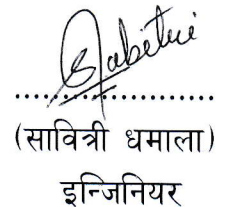 Sabitri
....................
(सावित्री धमाला)
इन्जिनियर